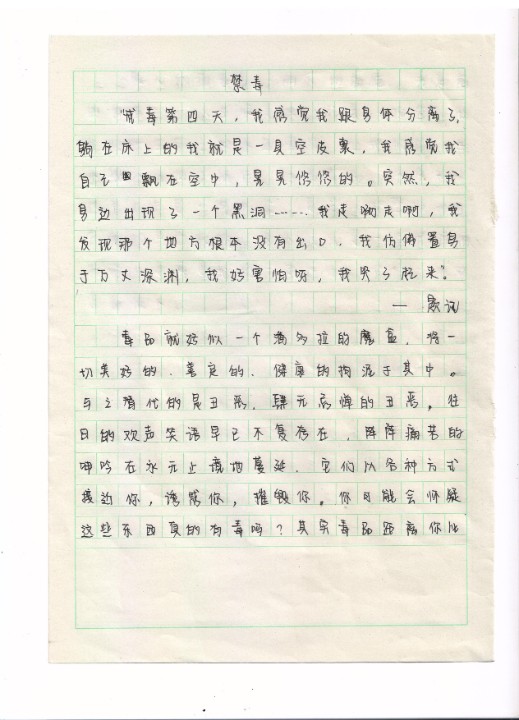 禁毒
“戒毒第四天，我感觉我跟身体分离了，
躺在床上的我就是一具空皮囊，我感觉我
自己飘在空中，晃晃悠悠的。突然，我
身边出现了一个黑洞……我走啊走啊，我
发现那个地方根本没有出口，我仿佛置身
于万丈深渊，我好害怕呀，我哭了起来”。
——题记
毒品就好似一个潘多拉的魔盒，将一
切美好的、善良的、健康的拘泥于其中。
与之替代的是丑恶，肆无忌惮的丑恶。往
日的欢声笑语早已不复存在，阵阵痛苦的
呻吟在永无止境地蔓延，它们以各种方式
接近你，诱惑你，摧毁你。你可能会怀疑
这些东西真的有毒吗？其实毒品距离你比